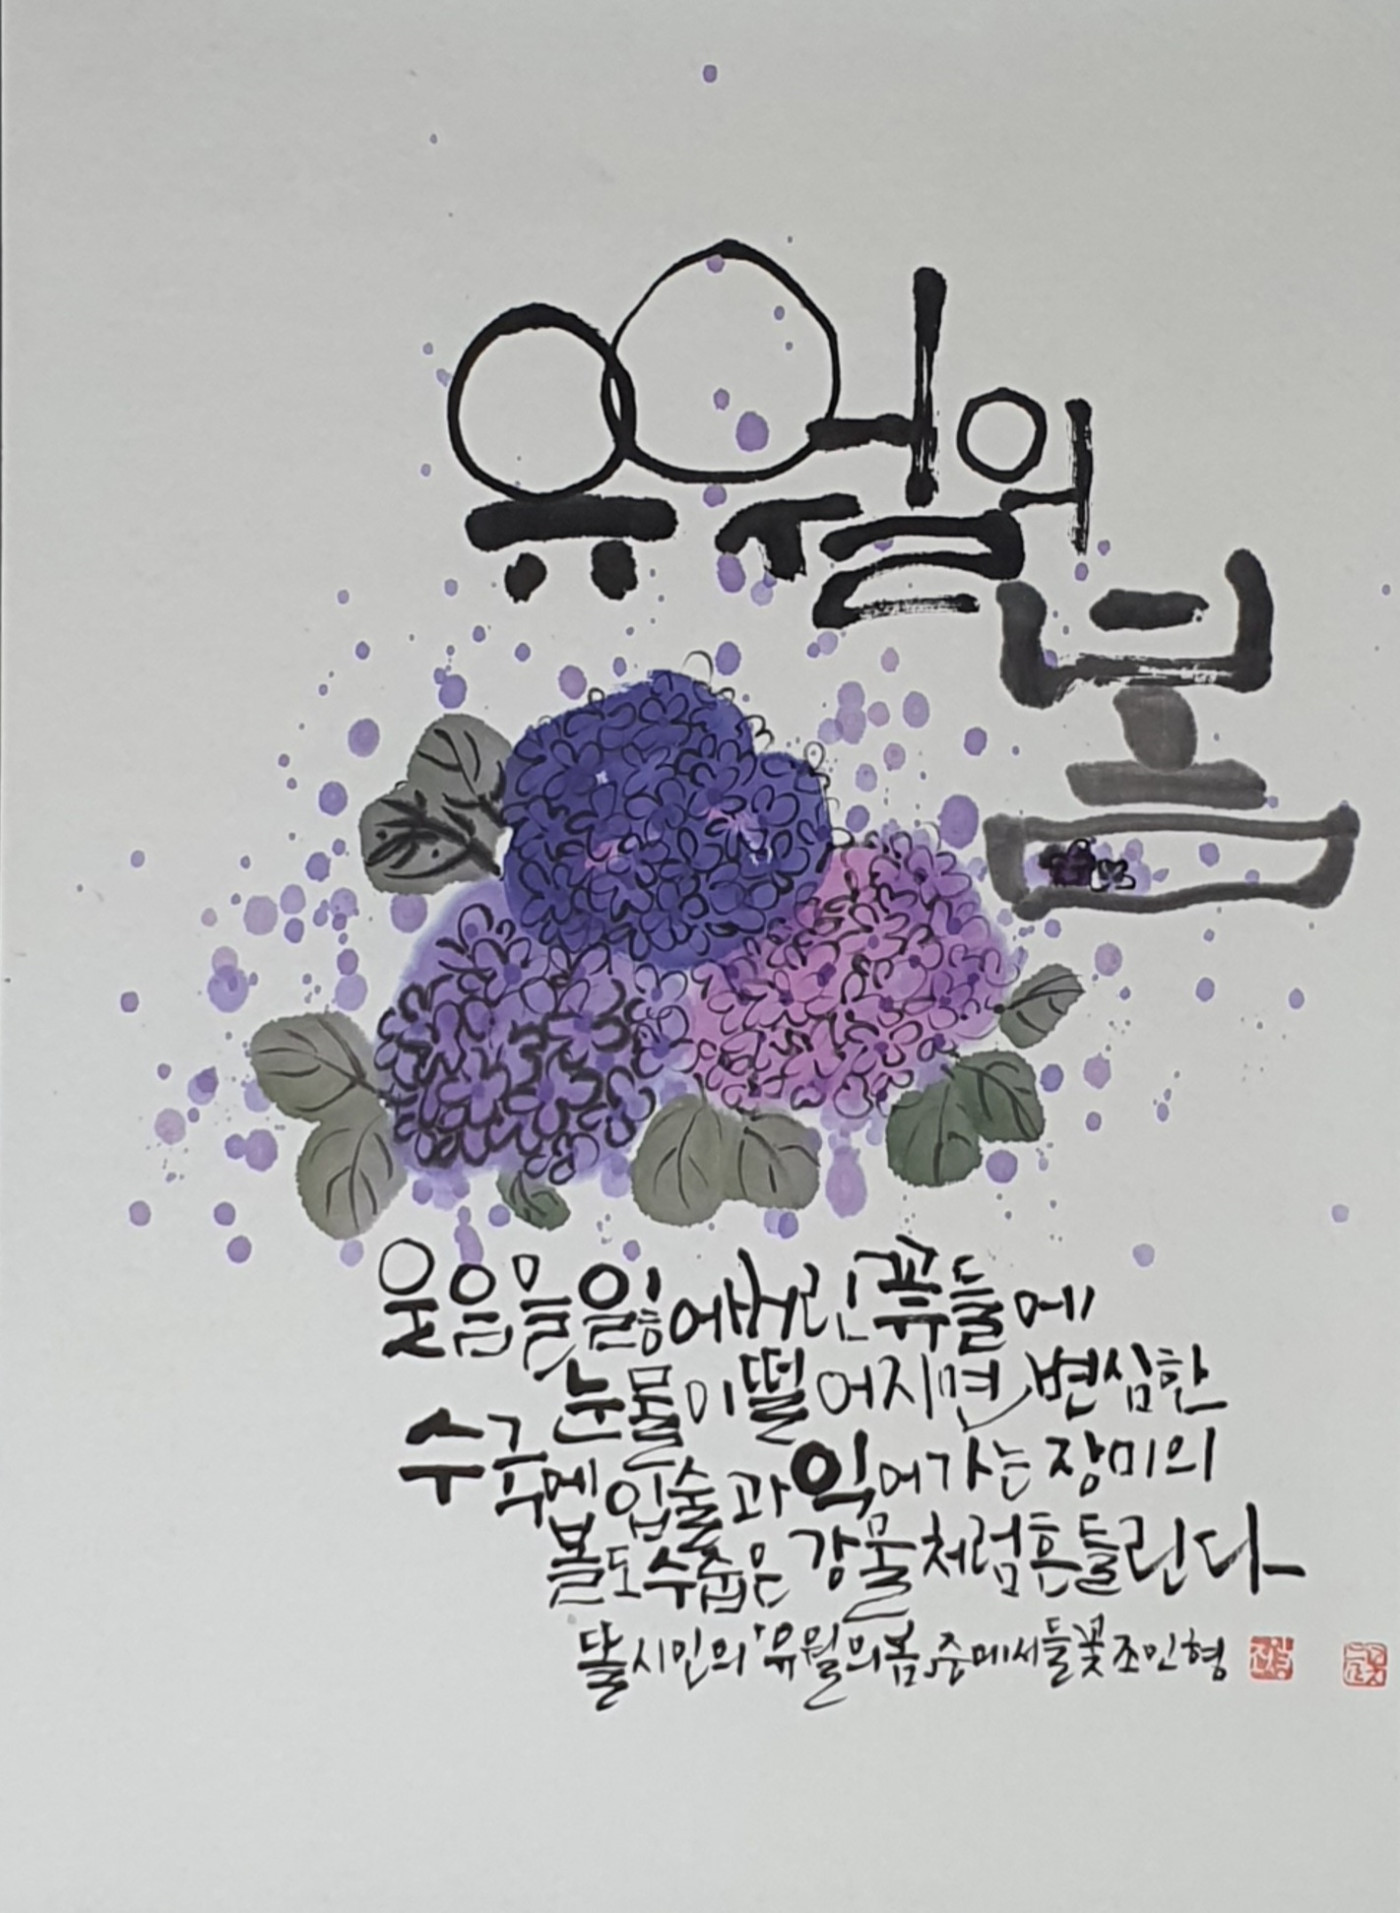 유월의
봄
웃음을 잃어버린 꽃들에
눈물이 떨어지면 변심한
수국에 입술과 익어가는 장미의
볼도 수줍은 강물처럼 흔들린다
달시인의 '유월의 봄' 중에서 들꽃 조민형